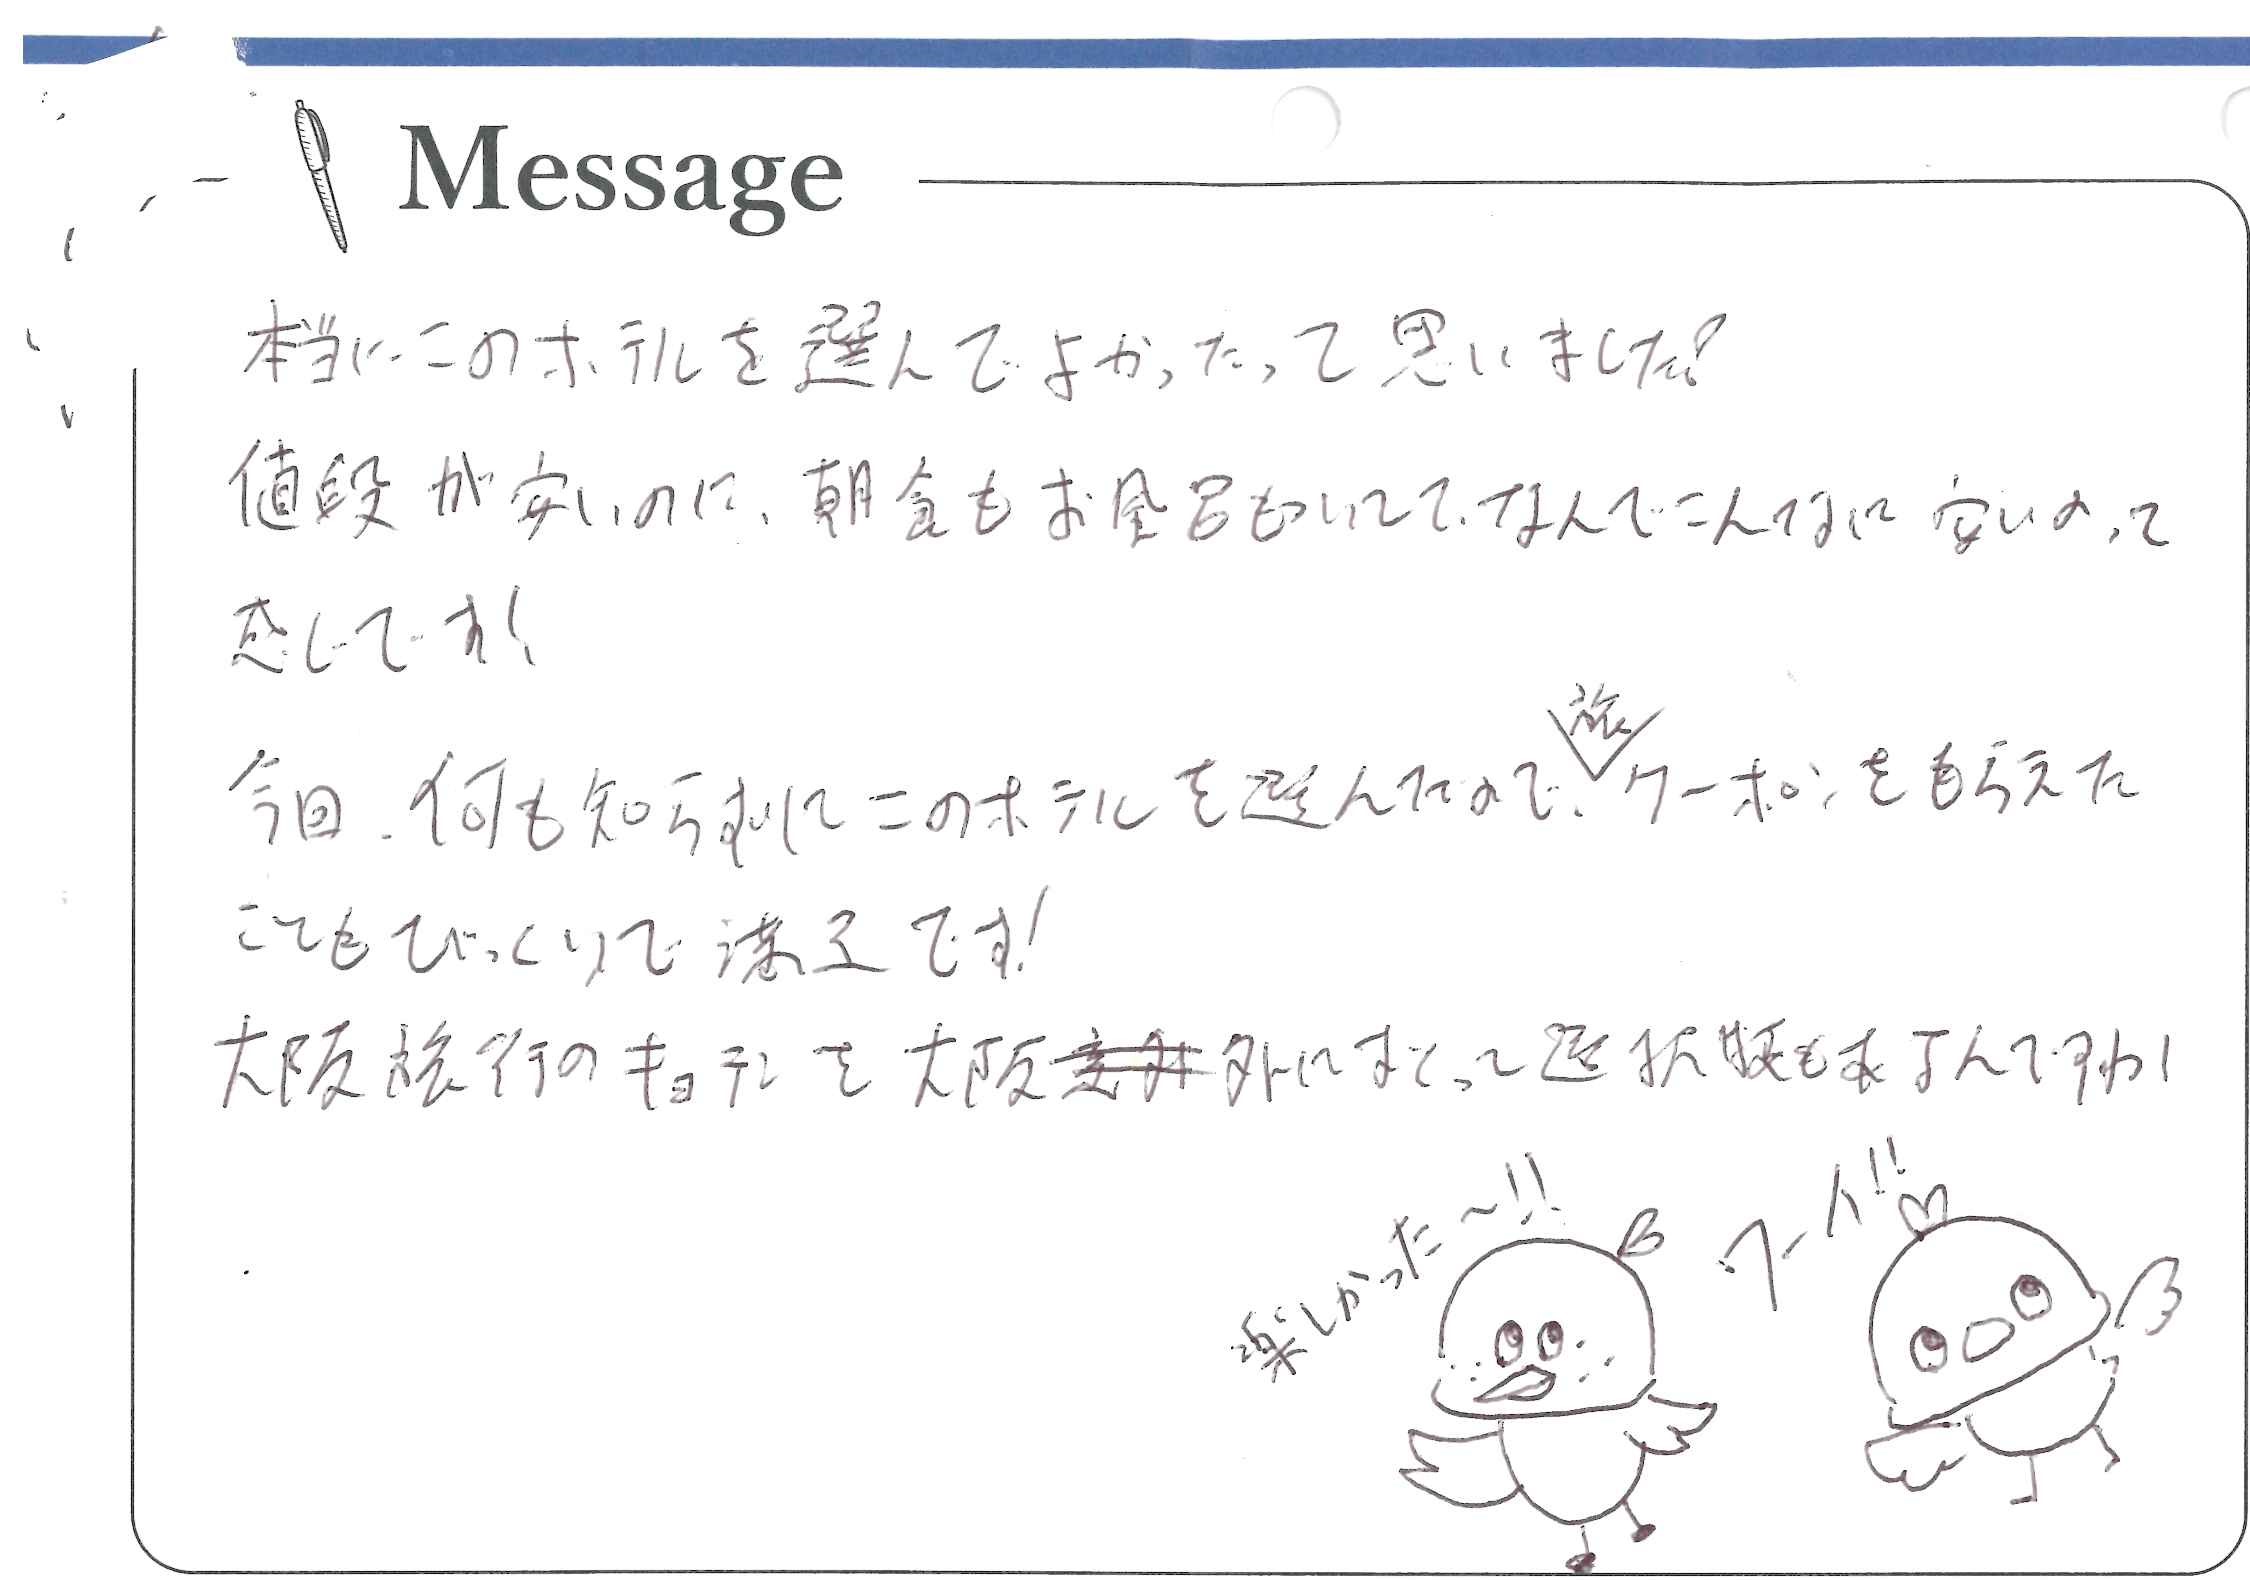 Message
本当にこのホテルを選んでよかったって思いました!
値段が安いのに、朝食もお風呂もついてて、なんでこんなに安いのって
感じです!
旅
今回、何も知らずにこのホテルを選んだので、クーポンをもらえた
こともびっくりで凄えです!
大阪旅行のキョテンを大阪外にするって選択肢もあるんですね!
楽しかった〜!!
ワーイ!!